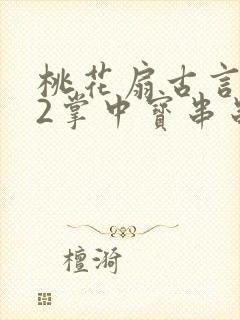 桃花扇古言
2掌中寶串
檀漪